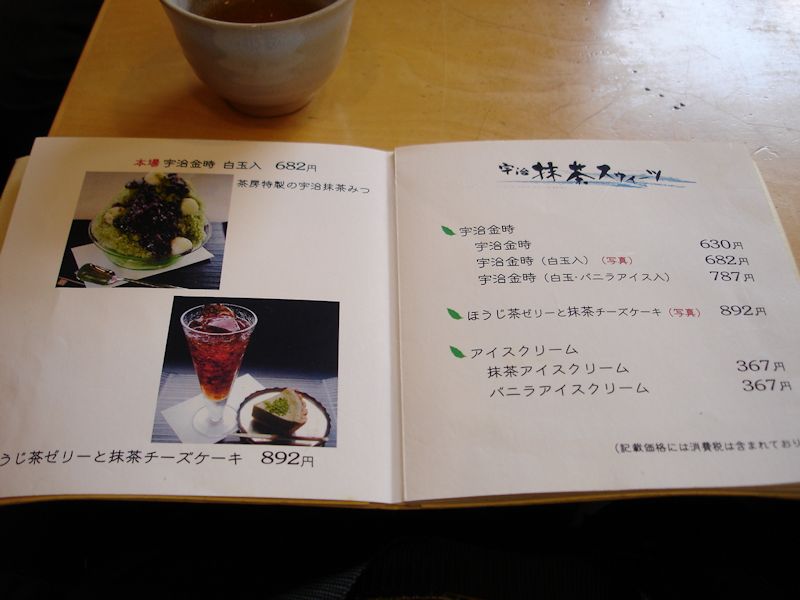 本場 宇治金時 白玉入 682円
茶房特製の宇治抹茶みつ
うじ茶ゼリーと抹茶チーズケーキ 892円
宇治 抹茶スウィーツ
宇治金時
宇治金時 630円
宇治金時（白玉入）（写真） 682円
宇治金時（白玉・バニラアイス入） 787円
ほうじ茶ゼリーと抹茶チーズケーキ（写真） 892円
アイスクリーム
抹茶アイスクリーム 367円
バニラアイスクリーム 367円
（記載価格には消費税は含まれており